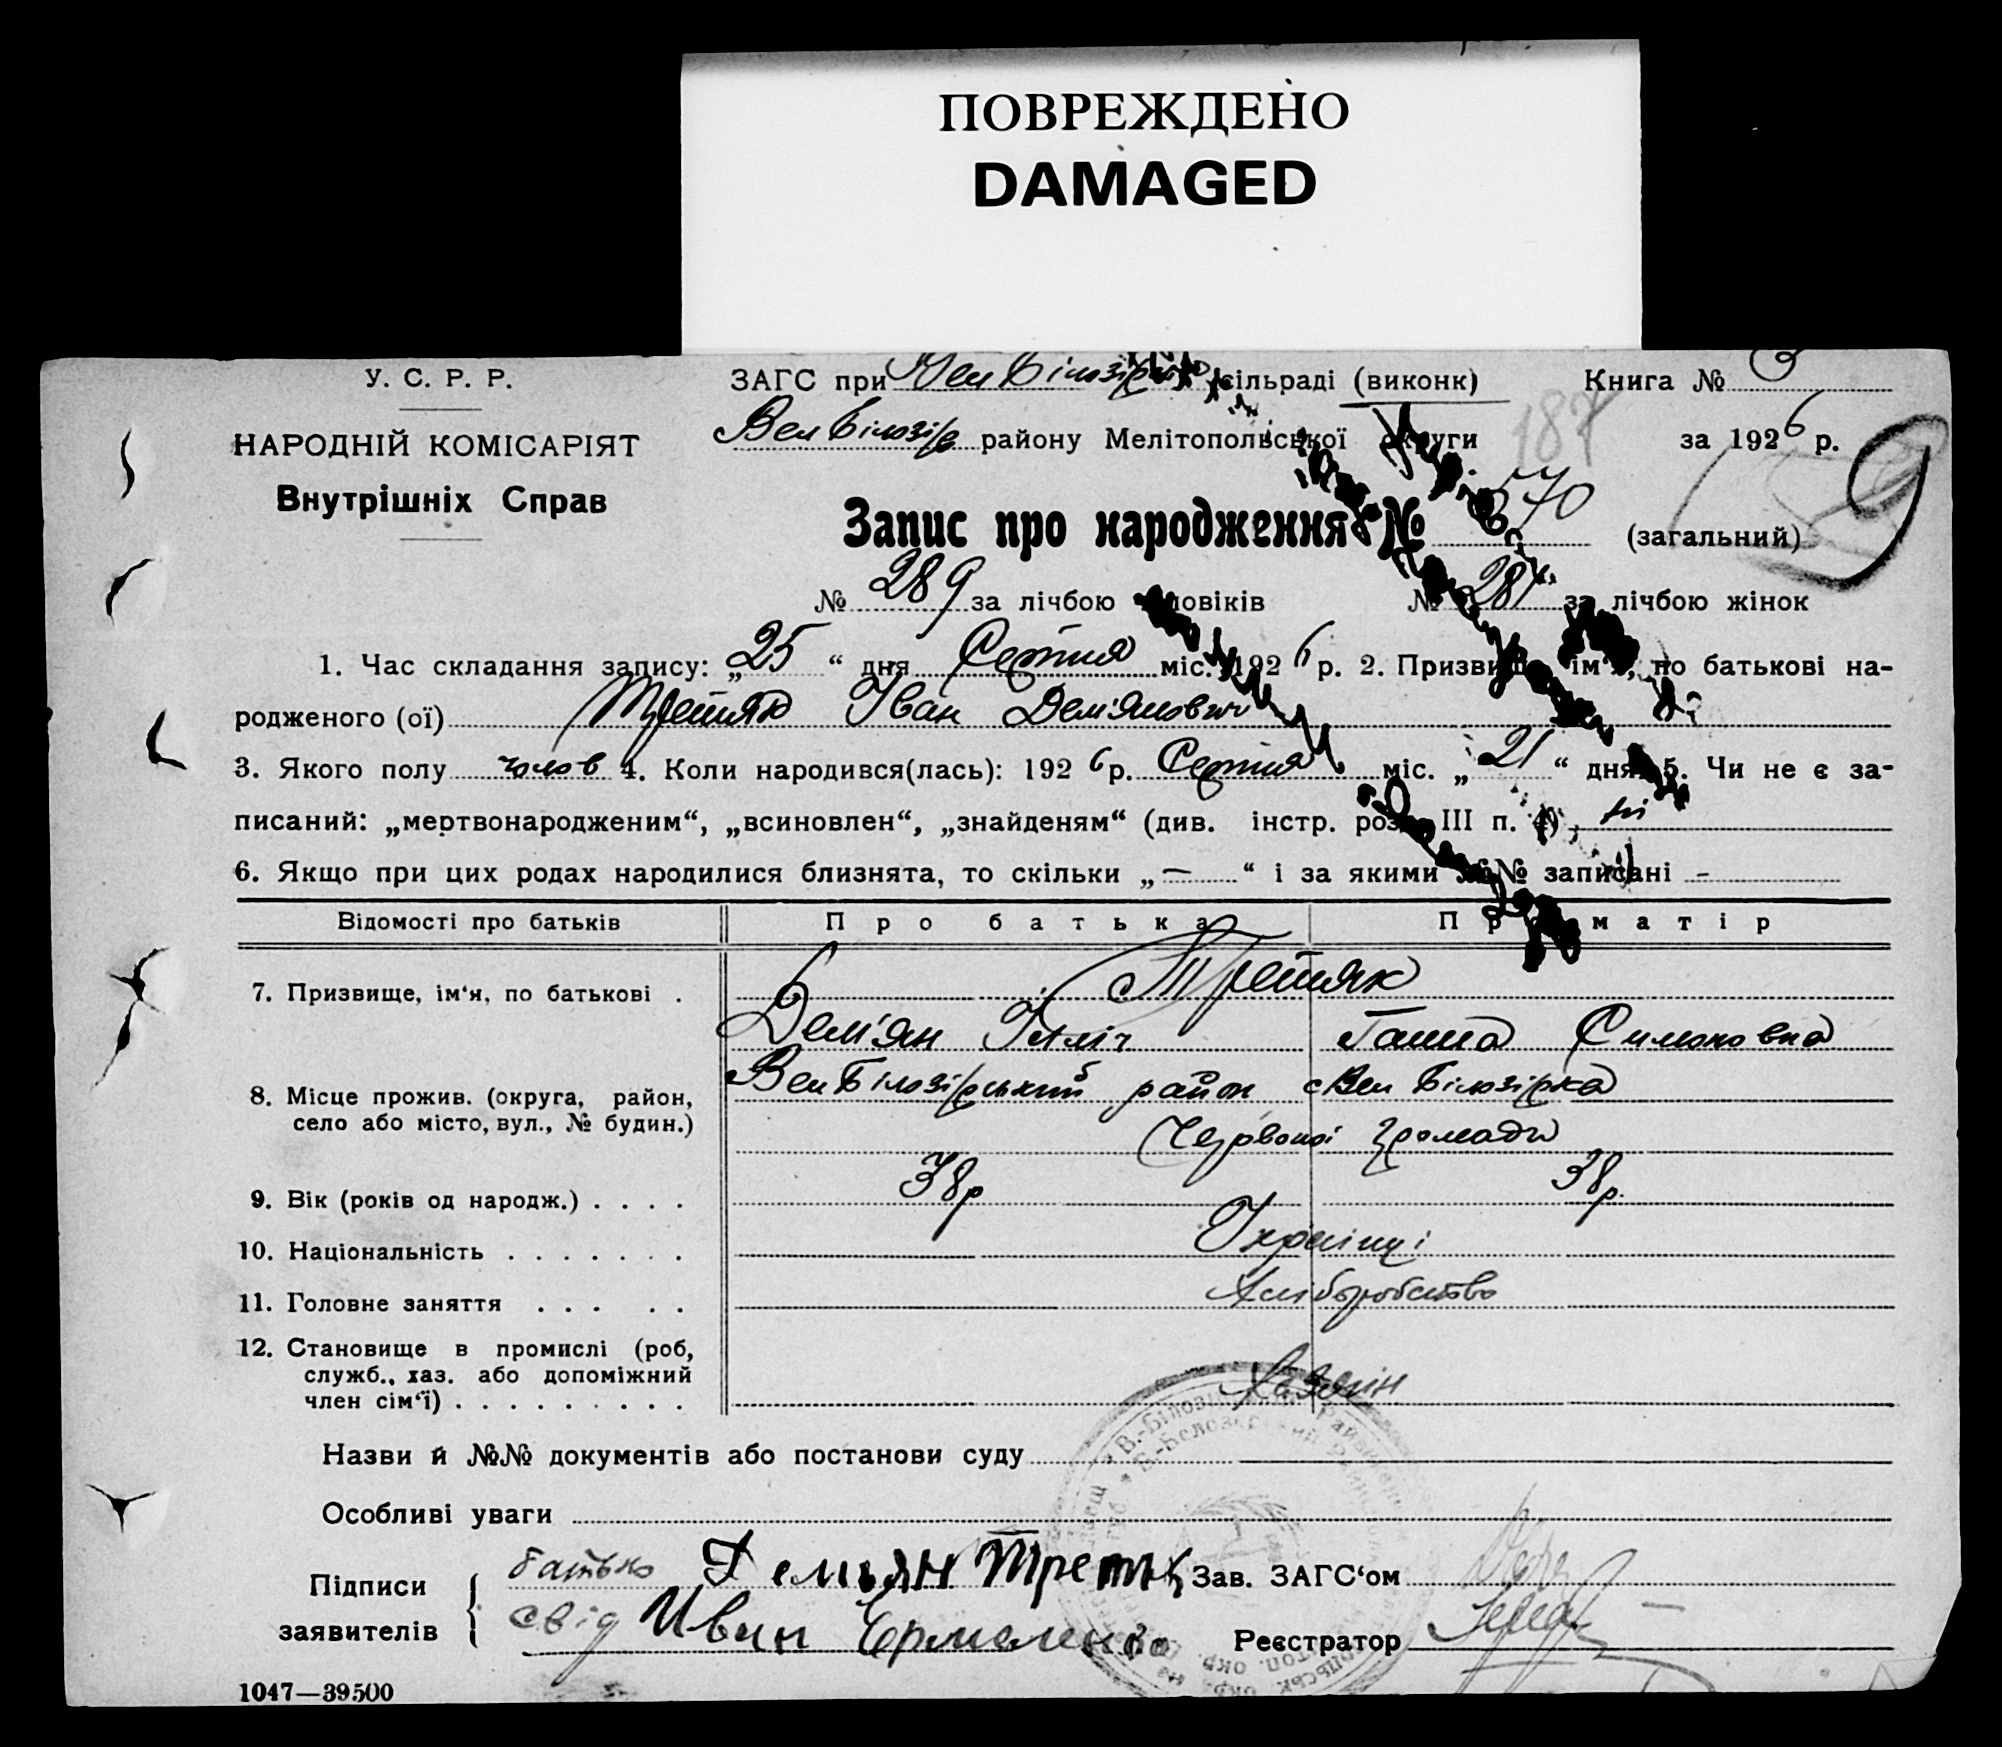 ПОВРЕЖДЕНО
DAMAGED
У. С. Р. Р.
НАРОДНІЙ КОМІСАРІЯТ
Внутрішніх Справ
ЗАГС при Вел Білозірськ сільраді (виконк) Книга №
Вел Білозір району Мелітопольської округи за 1926 р.
187
9
Запис про народження № 570 (загальний)
№ 289 за лічбою чоловіків № 281 за лічбою жінок
1. Час складання запису: „25“ дня Серпня міс. 1926 р. 2. Призвище, ім‘я, по батькові на-
родженого (ої) Третяк Іван Дем'янович
3. Якого полу чолов 4. Коли народився(лась): 1926 р. Серпня міс. „21“ дня 5. Чи не є за-
писаний: „мертвонародженим“, „всиновлен“, „знайденям“ (див. інстр. розд. III п. 4) ні
6. Якщо при цих родах народилися близнята, то скільки „—“ і за якими №№ записані -
Відомості про батьків Про батька Про матір
7. Призвище, ім‘я, по батькові . Третяк
Дем'ян Ілліч Ганна Симоновна
8. Місце прожив. (округа, район, село або місто, вул., № будин.) Вел Білозірський район с Вел Білозірка
Червоної громади
9. Вік (років од народж.) . . . . 38р 38р.
10. Національність . . . . . . . Українці
11. Головне заняття . . . . . Хліборобство
12. Становище в промислі (роб,
служб., хаз. або допоміжний
член сім‘ї) . . . . . . . . . Хазяїн
Назви й №№ документів або постанови суду
Особливі уваги
Підписи заявителів { батько Демьян Третяк Зав. ЗАГС‘ом
свід Иван Ермоленко Реєстратор
1047—39500